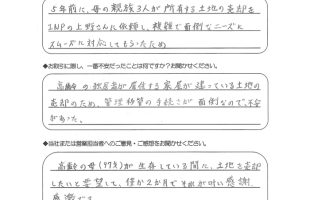 5年前に、母の親族3人が所有する土地の売却を
INPの上野さんに依頼し、複雑で面倒なニーズに
スムーズに対応してもらったため
◆お取引に際し、一番不安だったことは何ですか?お聞かせください。
高齢の独居者が居住する家屋が建っている土地の
売却のため、管理移管の手続きが面倒なので、不安
があった。
◆当社または営業担当者へのご意見・ご感想をお聞かせください。
高齢の母(97才)が生存している間に、土地を売却
したいと要望して、僅か2か月でそれが叶い感謝
感激です